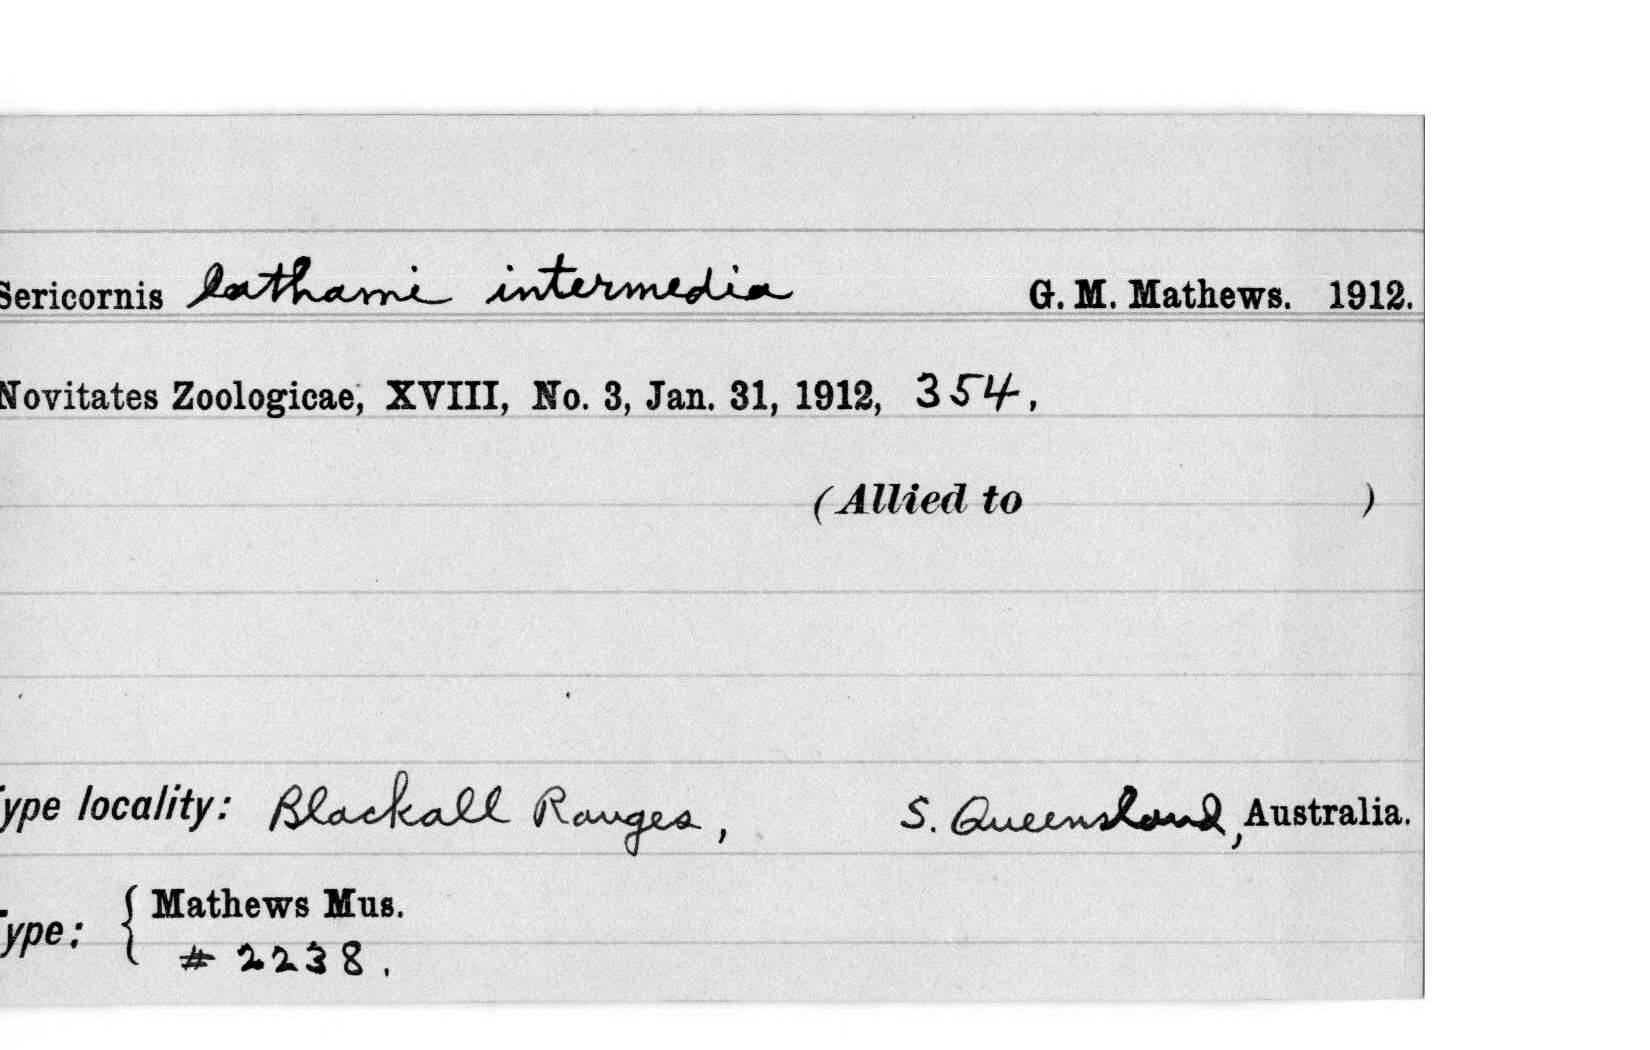 Sericornis lathami intermedia G. M. Mathews. 1912.
Novitates Zoologicae, XVIII, No. 3, Jan. 31, 1912, 354,
(Allied to )
Type locality: Blackall Ranges, S. Queensland, Australia.
Type: { Mathews Mus.
# 2238.